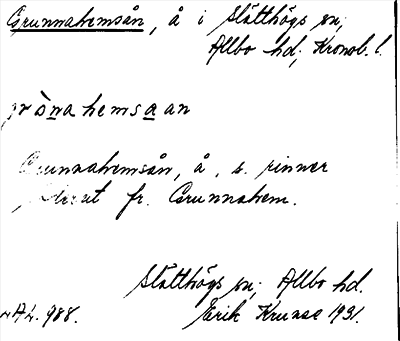 Grunnahemsån, å i Slätthögs sn,
Allbo hd, Kronob. l.
grònahemsaan
Grunnahemsån, å, s. rinner
fr. Grunnahem.
Slätthögs sn, Allbo hd.
Erik Kruuse 1931.
988.